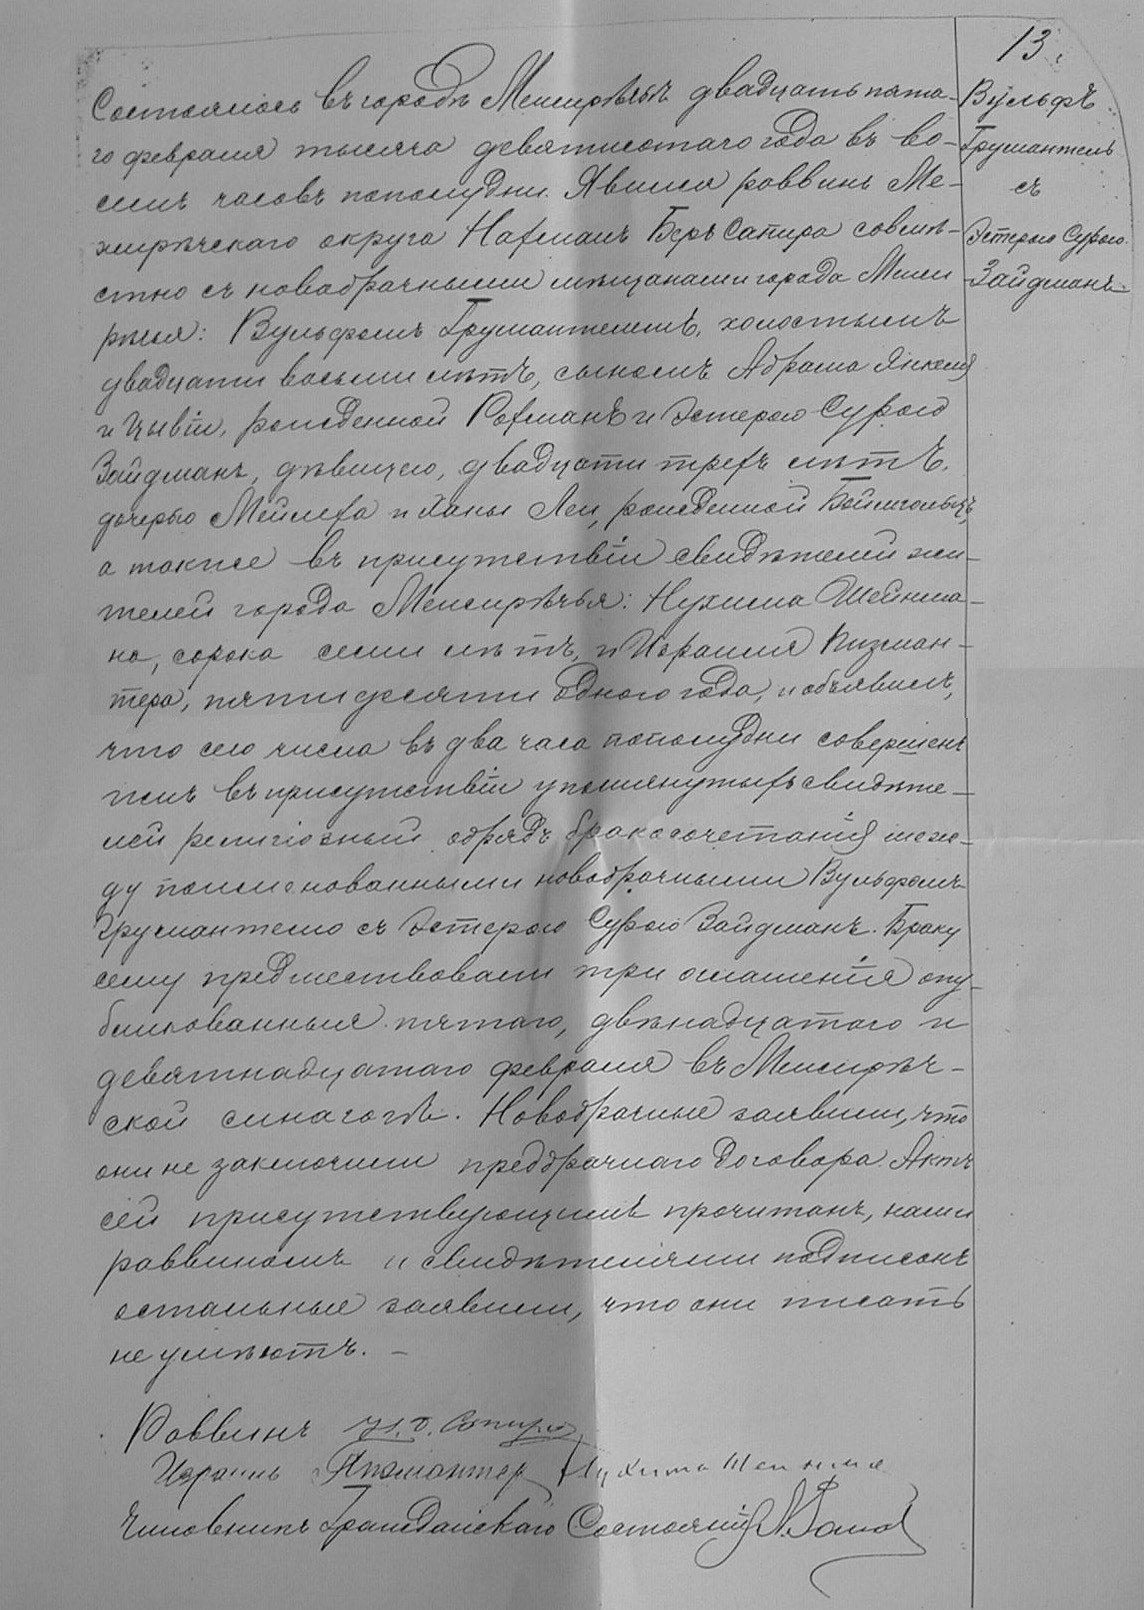 13.
Вульфъ
Грушантель
съ
Эстерою Сурою
Зайдманъ
Состоялось въ городѣ Менжирѣчьѣ двадцать пята-
го февраля тысяча девятисотаго года въ во-
семь часовъ пополудни. Явился раввинъ Ме-
жирѣчскаго округа Нахманъ Беръ Сапира совмѣ-
стно съ новобрачными мѣщанами города Менжи
рѣчья: Вульфомъ Грумантелемъ, холостымъ
двадцати восьми лѣтъ, сыномъ Абрама Янкеля
и Цывіи, рожденной Рохманъ и Эстерою Сурою
Зайдманъ, дѣвицею, двадцати трехъ лѣтъ,
дочерью Мейлеха и Ханы Леи, рожденной
а также въ присутствіи свидѣтелей жи-
телей города Менжирѣчья: Нухима Шейнма-
на, сорока семи лѣтъ, и Израиля Пизман-
тера, пятидесяти одного года, и объявилъ,
что сего числа въ два часа пополудни совершенъ
имъ въ присутствіи упомянутыхъ свидѣте-
лей религіозный обрядъ бракосочетанія меж-
ду поименованными новобрачными Вульфомъ
Грумантелю съ Эстерою Сурою Зайдманъ. Браку
сему предшествовали три оглашенія опу-
бликованныя пятаго, двѣнадцатаго и
девятнадцатаго февраля въ Менжирѣч-
ской синагогѣ. Новобрачные заявили, что
они не заключили предбрачнаго договора. Актъ
сей присутствующимъ прочитанъ, нами
раввиномъ и свидѣтелями подписанъ
остальные заявили, что они писать
не умѣютъ. —
Раввинъ Н. Б. Сапира
Израиль Нухима Шейнма
Чиновникъ Гражданскаго Состоянія